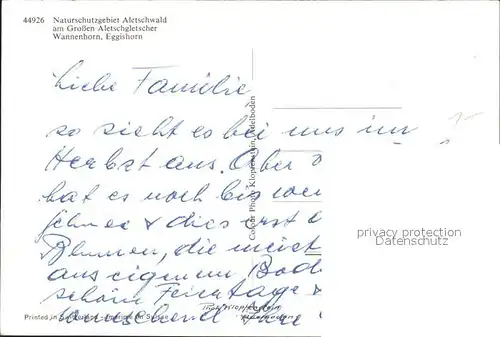 44926 Naturschutzgebiet Aletschwald
am Großen Aletschgletscher
Wannenhorn, Eggishorn
Liebe Familie
so sieht es bei uns im
Herbst aus. Aber
hat es noch bis
Schnee & dies erst
Blumen, die meist
aus eigenem Bod
schöne Feiertage
wünschend Ihre
Color Photo Klopfenstein, Adelboden
privacy protection
Datenschutz
Printed in Switzerland - Imprimé en Suisse